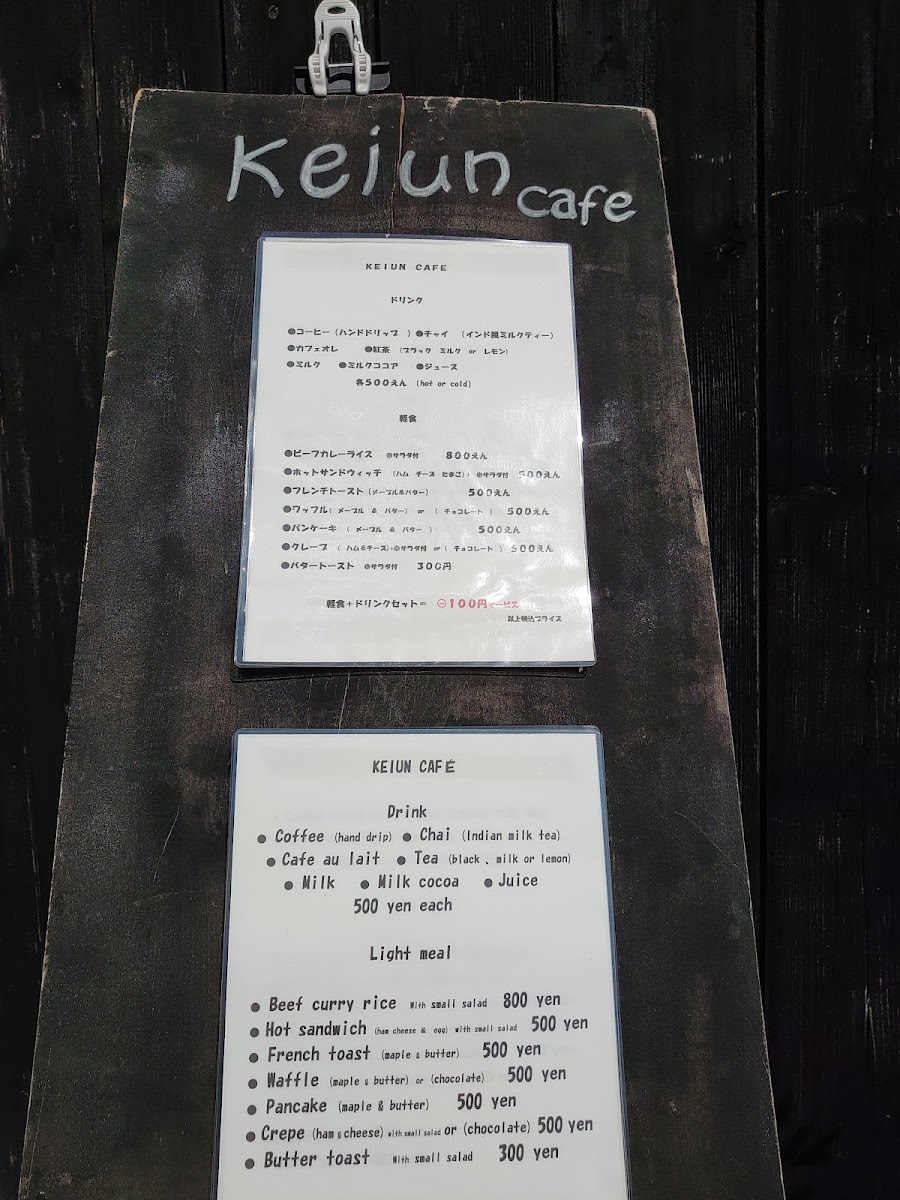 Keiun cafe
KEIUN CAFE
ドリンク
●コーヒー(ハンドドリップ ) ●チャイ (インド風ミルクティー)
●カフェオレ ●紅茶 (ブラック ミルク or レモン)
●ミルク ●ミルクココア ●ジュース
各500えん (hot or cold)
軽食
●ビーフカレーライス ㊕サラダ付 800えん
●ホットサンドウィッチ (ハム チーズ たまご)+ ㊕サラダ付 500えん
●フレンチトースト(メープル&バター) 500えん
●ワッフル( メープル & バター) or ( チョコレート ) 500えん
●パンケーキ ( メープル & バター ) 500えん
●クレープ ( ハム&チーズ)+㊕サラダ付 or ( チョコレート ) 500えん
●バタートースト ㊕サラダ付 300円
軽食+ドリンクセット= ㊀100円サービス
以上税込プライス
KEIUN CAFÉ
Drink
● Coffee (hand drip) ● Chai (Indian milk tea)
● Cafe au lait ● Tea (black 、milk or lemon)
● Milk ● Milk cocoa ● Juice
500 yen each
Light meal
● Beef curry rice With small salad 800 yen
● Hot sandwich (ham cheese & egg) with small salad 500 yen
● French toast (maple & butter) 500 yen
● Waffle (maple & butter) or (chocolate) 500 yen
● Pancake (maple & butter) 500 yen
● Crepe (ham & cheese) with small salad or (chocolate) 500 yen
● Butter toast With small salad 300 yen